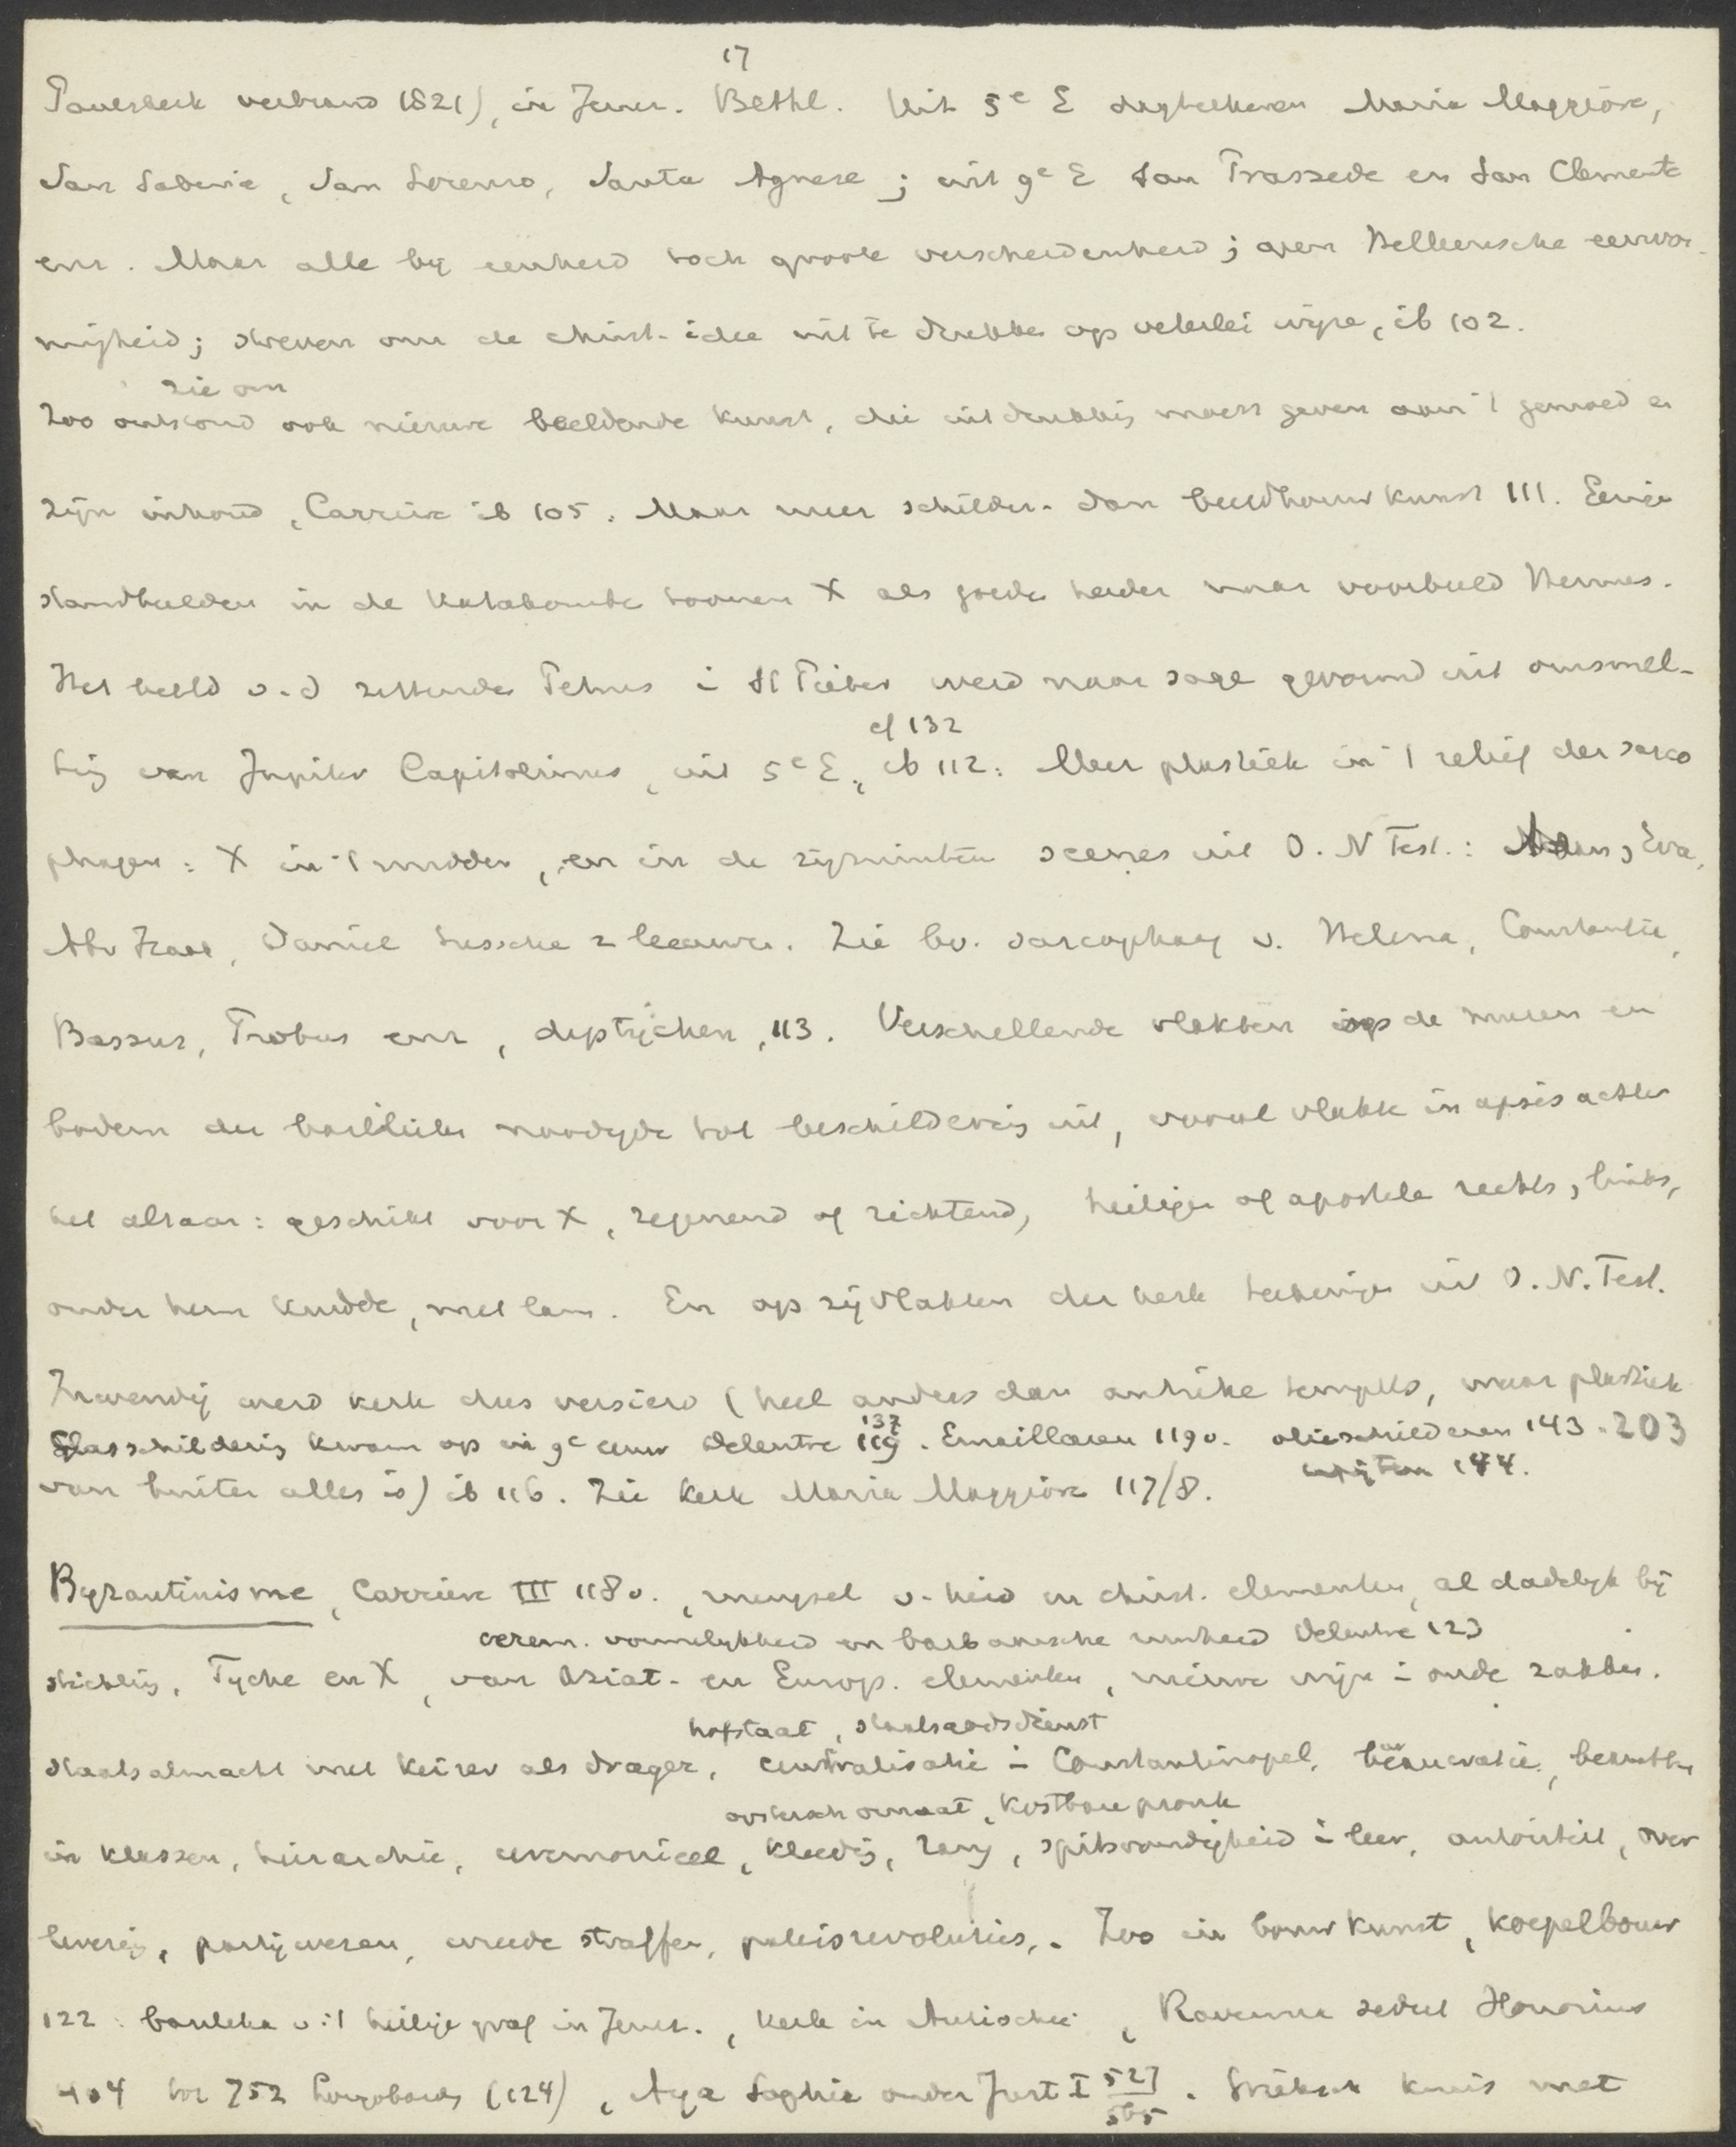 17
Pauskerk verbrand 1821), in Jerus. Bethl. Uit 5e E dagteekenen Maria Maggiore,
San Sabina, San Lorenzo, Santa Agnese; uit 9e E San Prassede en San Clemente
enz. Maar alle bij eenheid toch groote verscheidenheid; geen Helleensche eenvor-
migheid; streven om de christ. idee uit te drukken op velerlei wijze, ib 102.
zie om
Zoo ontstond ook nieuwe beeldende kunst, die uitdrukking moest geven aan 't gemoed en
zijn inhoud, Carrière ib 105. Maar meer schilder- dan beeldhouwkunst 111. Eenige
standbeelden in de Katakombe toonen X als goede herder naar voorbeeld Hermes.
Het beeld v.d zittende Petrus i St Pieter werd naar sage gevormd uit omsmel-
cf 132
ting van Jupiter Capitolinus, uit 5e E, ib 112. Meer plastiek in 't relief der sarco
phagen: X in 't midden, en in de zijruimten scenes uit O. N Test.: Adam, Eva,
Abr Izaak, Daniel tussche 2 leeuwen. Zie bv. sarcophaag v. Helena, Constantia,
Bassus, Probus enz, diptychen, 113. Verschillende vlakken op de muren en
bodem der basilieken noodigde tot beschildering uit, vooral vlakte in apsis achter
het altaar: geschikt voor X, zegenend of richtend, heiligen of apostelen rechts, links,
onder hem kudde, met lam. En op zijvlakken der kerk teekeningen uit O. N. Test.
Inwendig werd kerk dus versierd (heel anders dan antieke tempels, waar plastiek
Glasschildering kwam op in 9e eeuw Delentre 119 137. Emailleeren 119v. olieschilderen 143-203
144.
van buiten alles is) ib 116. Zie kerk Maria Maggiore 117/8.
Byzantinisme, Carrière III 118v., mengsel v. heid en christ. elementen, al dadelijk bij
cerem. vormelijkheid en barbaarsche ruwheid Delentre 123
stichting, Tyche en X, van Aziat- en Europ. elementen, nieuwe wijn i oude zakken.
hofstaat, staatsgodsdienst
staatsalmacht met keizer als drager, centralisatie i Constantinopel, bureaucratie,
oostersch ornaat, kostbare pronk
in klassen, hierarchie, ceremonieel, kleeding, rang, spitsvondigheid i leer, autoriteit, over
levering, partijwezen, wreede straffen, paleisrevoluties,. Zoo in bouwkunst, koepelbouw
122: basilika v 't heilige graf in Jerus., kerk in Antiochië, Ravenna zetel Honorius
404 tot 752 Longobards (124), Aya Sophia onder Just I 527 565. Grieksch kruis met